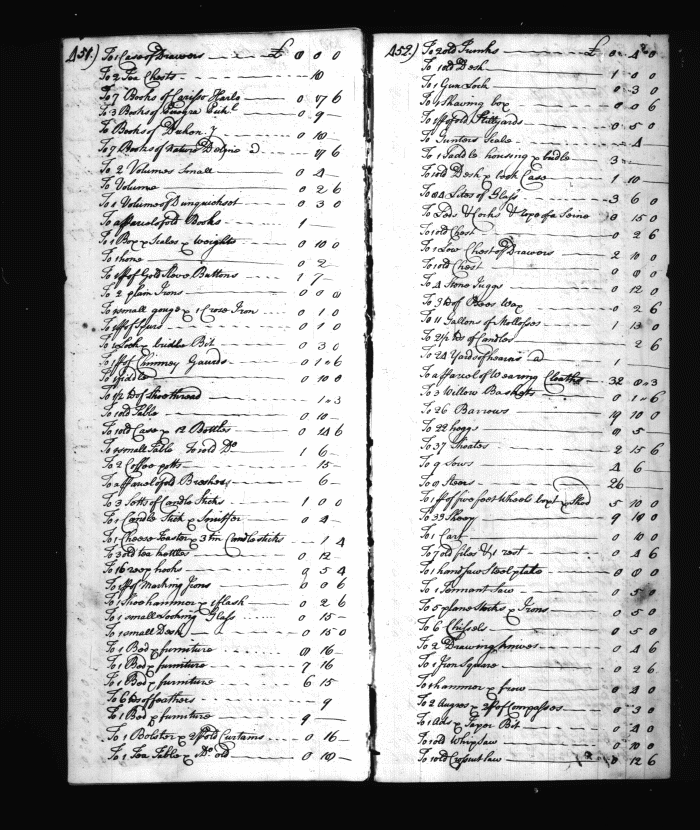 451.) To 1 Case of Drawers £ 0 0 0
To 2 Tea Chests 10
To 7 Books of Clarisso Harlo 0 17 6
To 3 Books of 0 9 -
To Books of 0 10 -
To 7 Books of Nature Delyne 17 6
To 2 Volumes Small 0 4 -
To Volume 0 2 6
To 1 Volume of Dunquicksot 0 3 0
To a parcel of old Books 1 -
To 1 Box & Scales & Weights 0 10 0
To 1 hone 0 2 -
To 1 pr of Gold Sleve Buttons 1 7 -
To 2 plain Irons 0 0 0
To 1 small gouge & 1 Croze Iron 0 1 0
To 1 pr of Spurs 0 1 0
To 1 Lock & bridle Bit 0 3 0
To 1 pr of Chimney Gaurds 0 1 6
To 1 Saddle 0 10 0
To 1/2 lb of Shoethread 1 3
To 1 old Table 0 10 -
To 1 old Case & 12 Bottles 0 14 6
To 1 small Table To 1 old Do 1 6 -
To 2 Coffee potts 15 -
To a parcel of old Brushes 6 -
To 3 Setts of Candle Sticks 1 0 0
To 1 Candle Stick & Snuffer 0 4 -
To 1 Cheese Toaster & 3 tin Candlesticks 1 4
To 3 old tea kettles 0 12 -
To 16 reap hooks 0 5 4
To 1 pr of Marking Irons 0 0 6
To 1 Shoehammer & 1 flask 0 2 6
To 1 small Looking Glass 0 15 -
To 1 small Desk 0 15 0
To 1 Bed & furniture 8 16 -
To 1 Bed & furniture 7 16
To 1 Bed & furniture 6 15
To 6 lb of feathers 9
To 1 Bed & furniture 9 -
To 1 Bolster & 2 pr old Curtains 0 16 -
To 1 Tea Table & Do old 0 10 -
452.) To 2 old Trunks £ 0 4 0
To 1 old Desk 1 0 0
To 1 Gun Lock 0 3 0
To 1 Shaving box 0 0 6
To 1 pr of old Stillyards 0 5 0
To Gunters Scale 4
To 1 Saddle housing & bridle 3
To 1 old Desk & book Case 1 10
To 84 Lites of Glass 3 6 0
To Leds & Corks & rope of a Seine 0 15 0
To 1 old Chest 0 2 6
To 1 Low Chest of Drawers 2 10 0
To 1 old Chest 0 8 0
To 4 Stone Juggs 0 12 0
To 3 lb of Bees Wax 2 6
To 11 Gallons of Mollosses 1 13 0
To 2 1/2 lb of Candles 2 6
To 24 Yards of 1
To a parcel of Wearing Cloaths 32 8 3
To 3 Willow Baskets 0 1 6
To 26 Barrows 19 10 0
To 22 hoggs 8 5
To 37 Shoates 2 15 6
To 9 Sows 4 6
To 9 Steers 26
To 1 pr of five foot Wheels boxt & Shod 5 10 0
To 33 Sheep 9 18 0
To 1 Cart 10 0
To 7 old files & 1 rest 0 4 6
To 1 hand saw Steel plate 0 8 0
To 1 Tennant Saw 5 0
To 5 plane Stocks & Irons 0 5 0
To 6 Chissels 0 5 0
To 2 Drawing knives 0 4 6
To 1 Iron Square 0 2 6
To 1 hammer & frow 0 4 0
To 2 Augres & 2 pr of Compasses 0 3 0
To 1 Ads & Taper Bit 0 4 0
To 1 old Whipsaw 0 10 0
To 1 old Crosscut saw 0 12 6